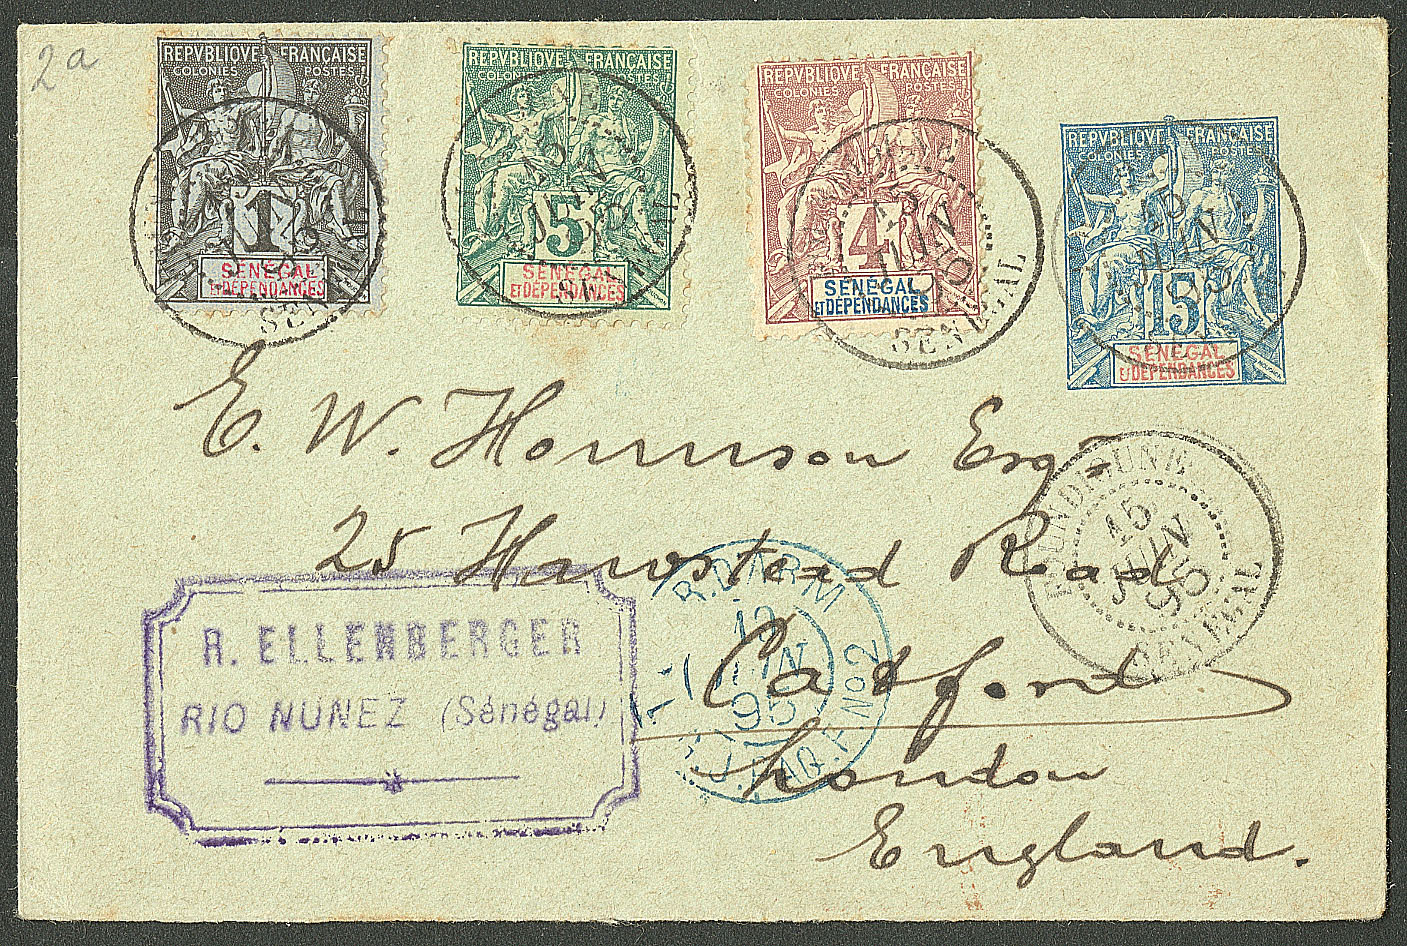 2a
REPVBLIQVE FRANÇAISE
COLONIES POSTES
1
SÉNÉGAL
ET DÉPENDANCES
SENEGAL
REPVBLIQVE FRANÇAISE
COLONIES POSTES
5
SÉNÉGAL
ET DÉPENDANCES
15
JUIN
REPVBLIQVE FRANÇAISE
COLONIES POSTES
4
SÉNÉGAL
ET DÉPENDANCES
15
JUIN
SENEGAL
REPVBLIQVE FRANÇAISE
COLONIES POSTES
15
SÉNÉGAL
ET DÉPENDANCES
15
JUIN
95
E. W. Esq
25 Hawstead Road
Catford
London
England.
15
JUIN
95
SENEGAL
JUIN
95
PAQ. F. No 2
A. ELLENBERGER
RIO NUNEZ (Sénégal)